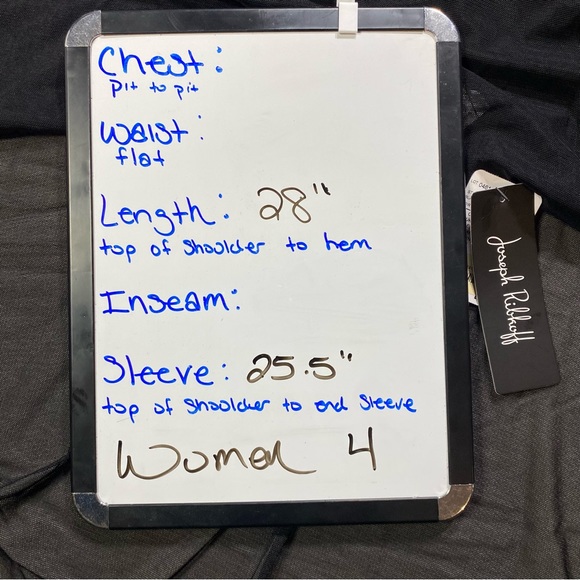 Chest:
pit to pit
Waist:
flat
Length: 28"
top of shoulder to hem
Inseam:
Sleeve: 25.5"
top of shoulder to end sleeve
Women 4
Joseph Ribkoff